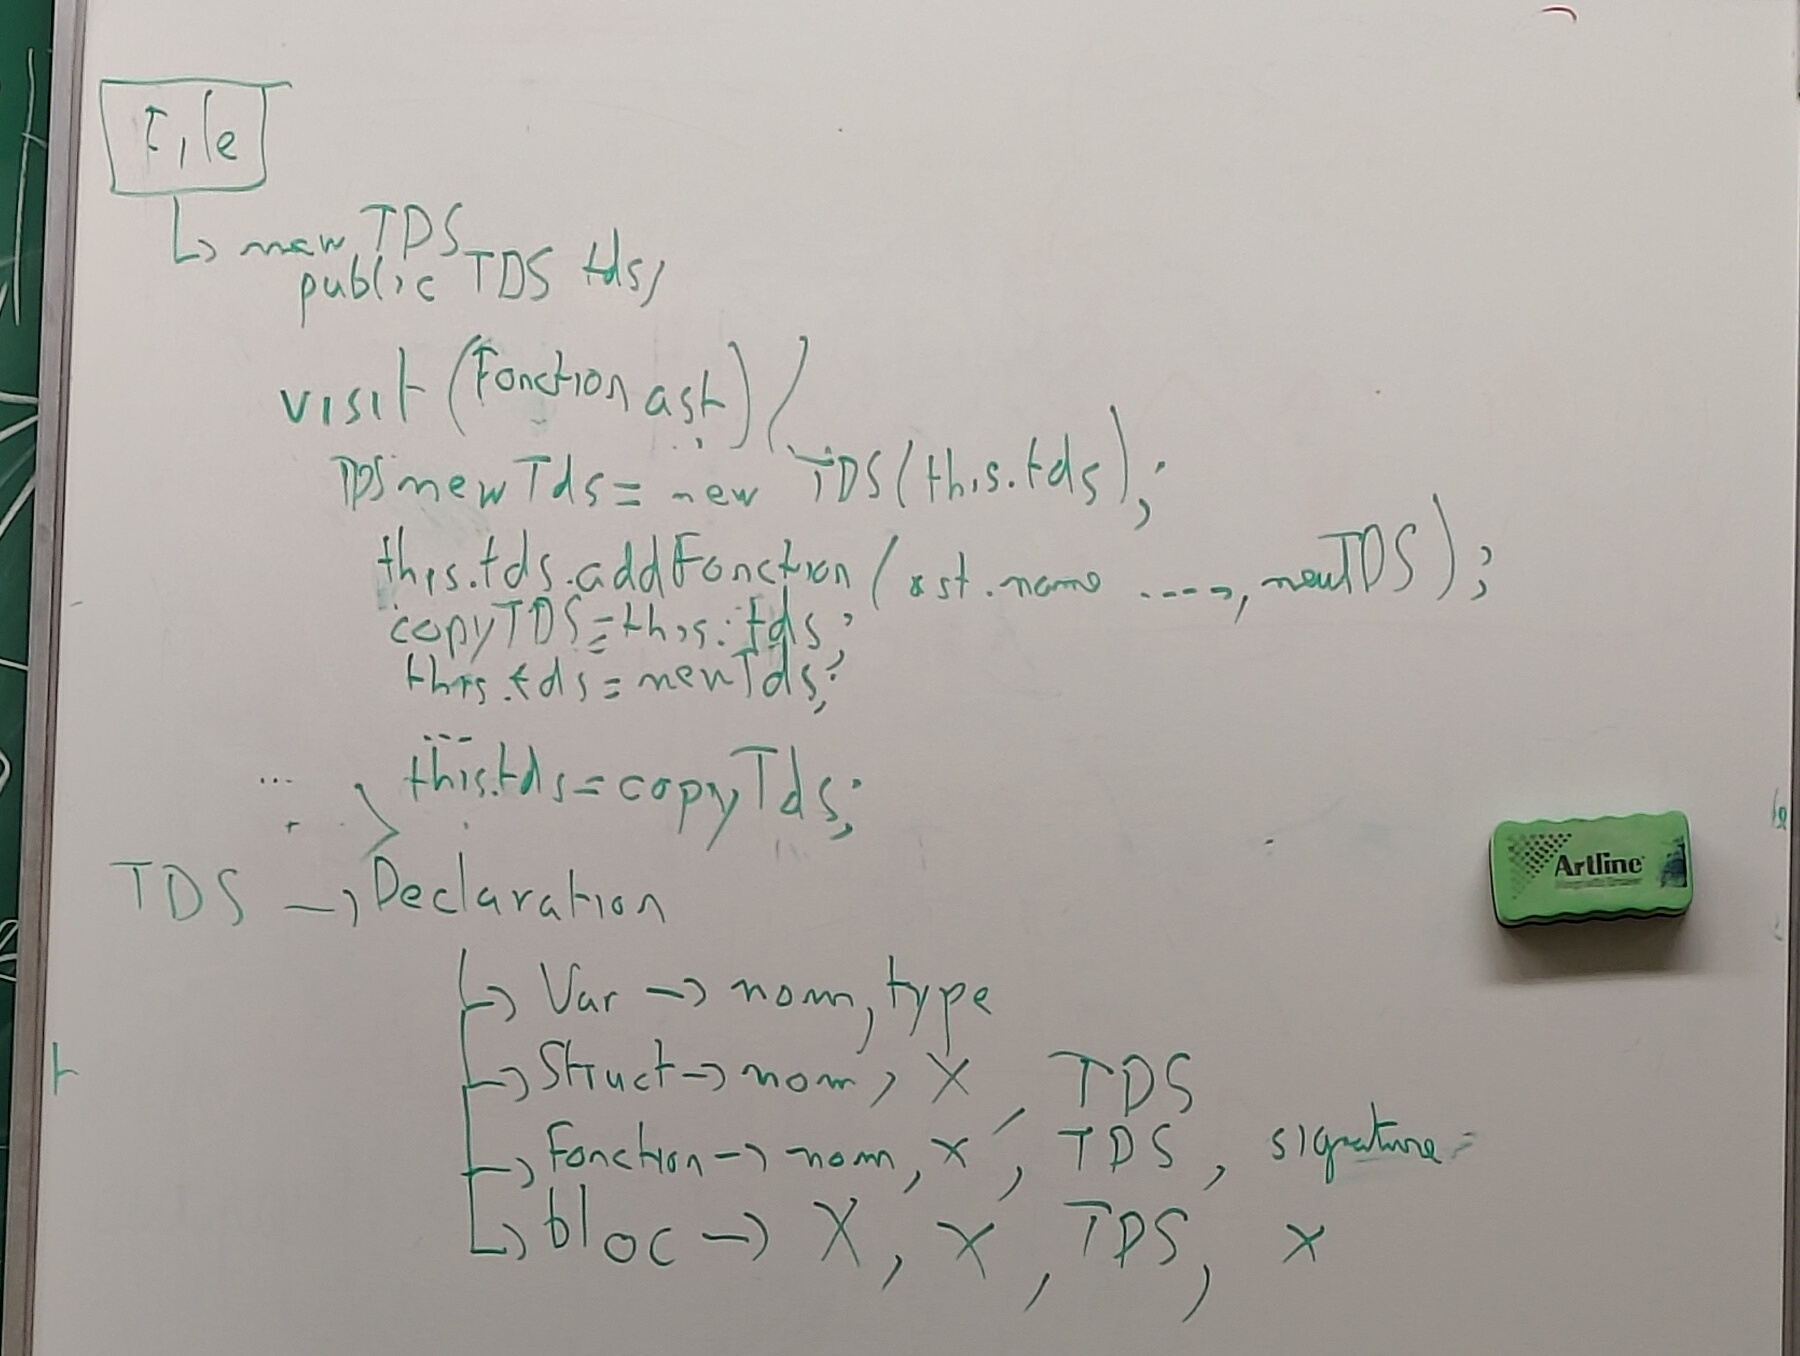 File
↳ new TDS
public TDS tds;
visit (Fonction ast) {
TDS newTds = new TDS(this.tds);
this.tds.addFonction(ast.name ...., newTDS);
copyTDS = this.tds;
this.tds = newTds;
...
... this.tds = copyTds;
}
TDS → Declaration
↳ Var → nom, type
↳ Struct → nom, X, TDS
↳ Fonction → nom, X, TDS, signature
↳ bloc → X, X, TDS, X
Artline